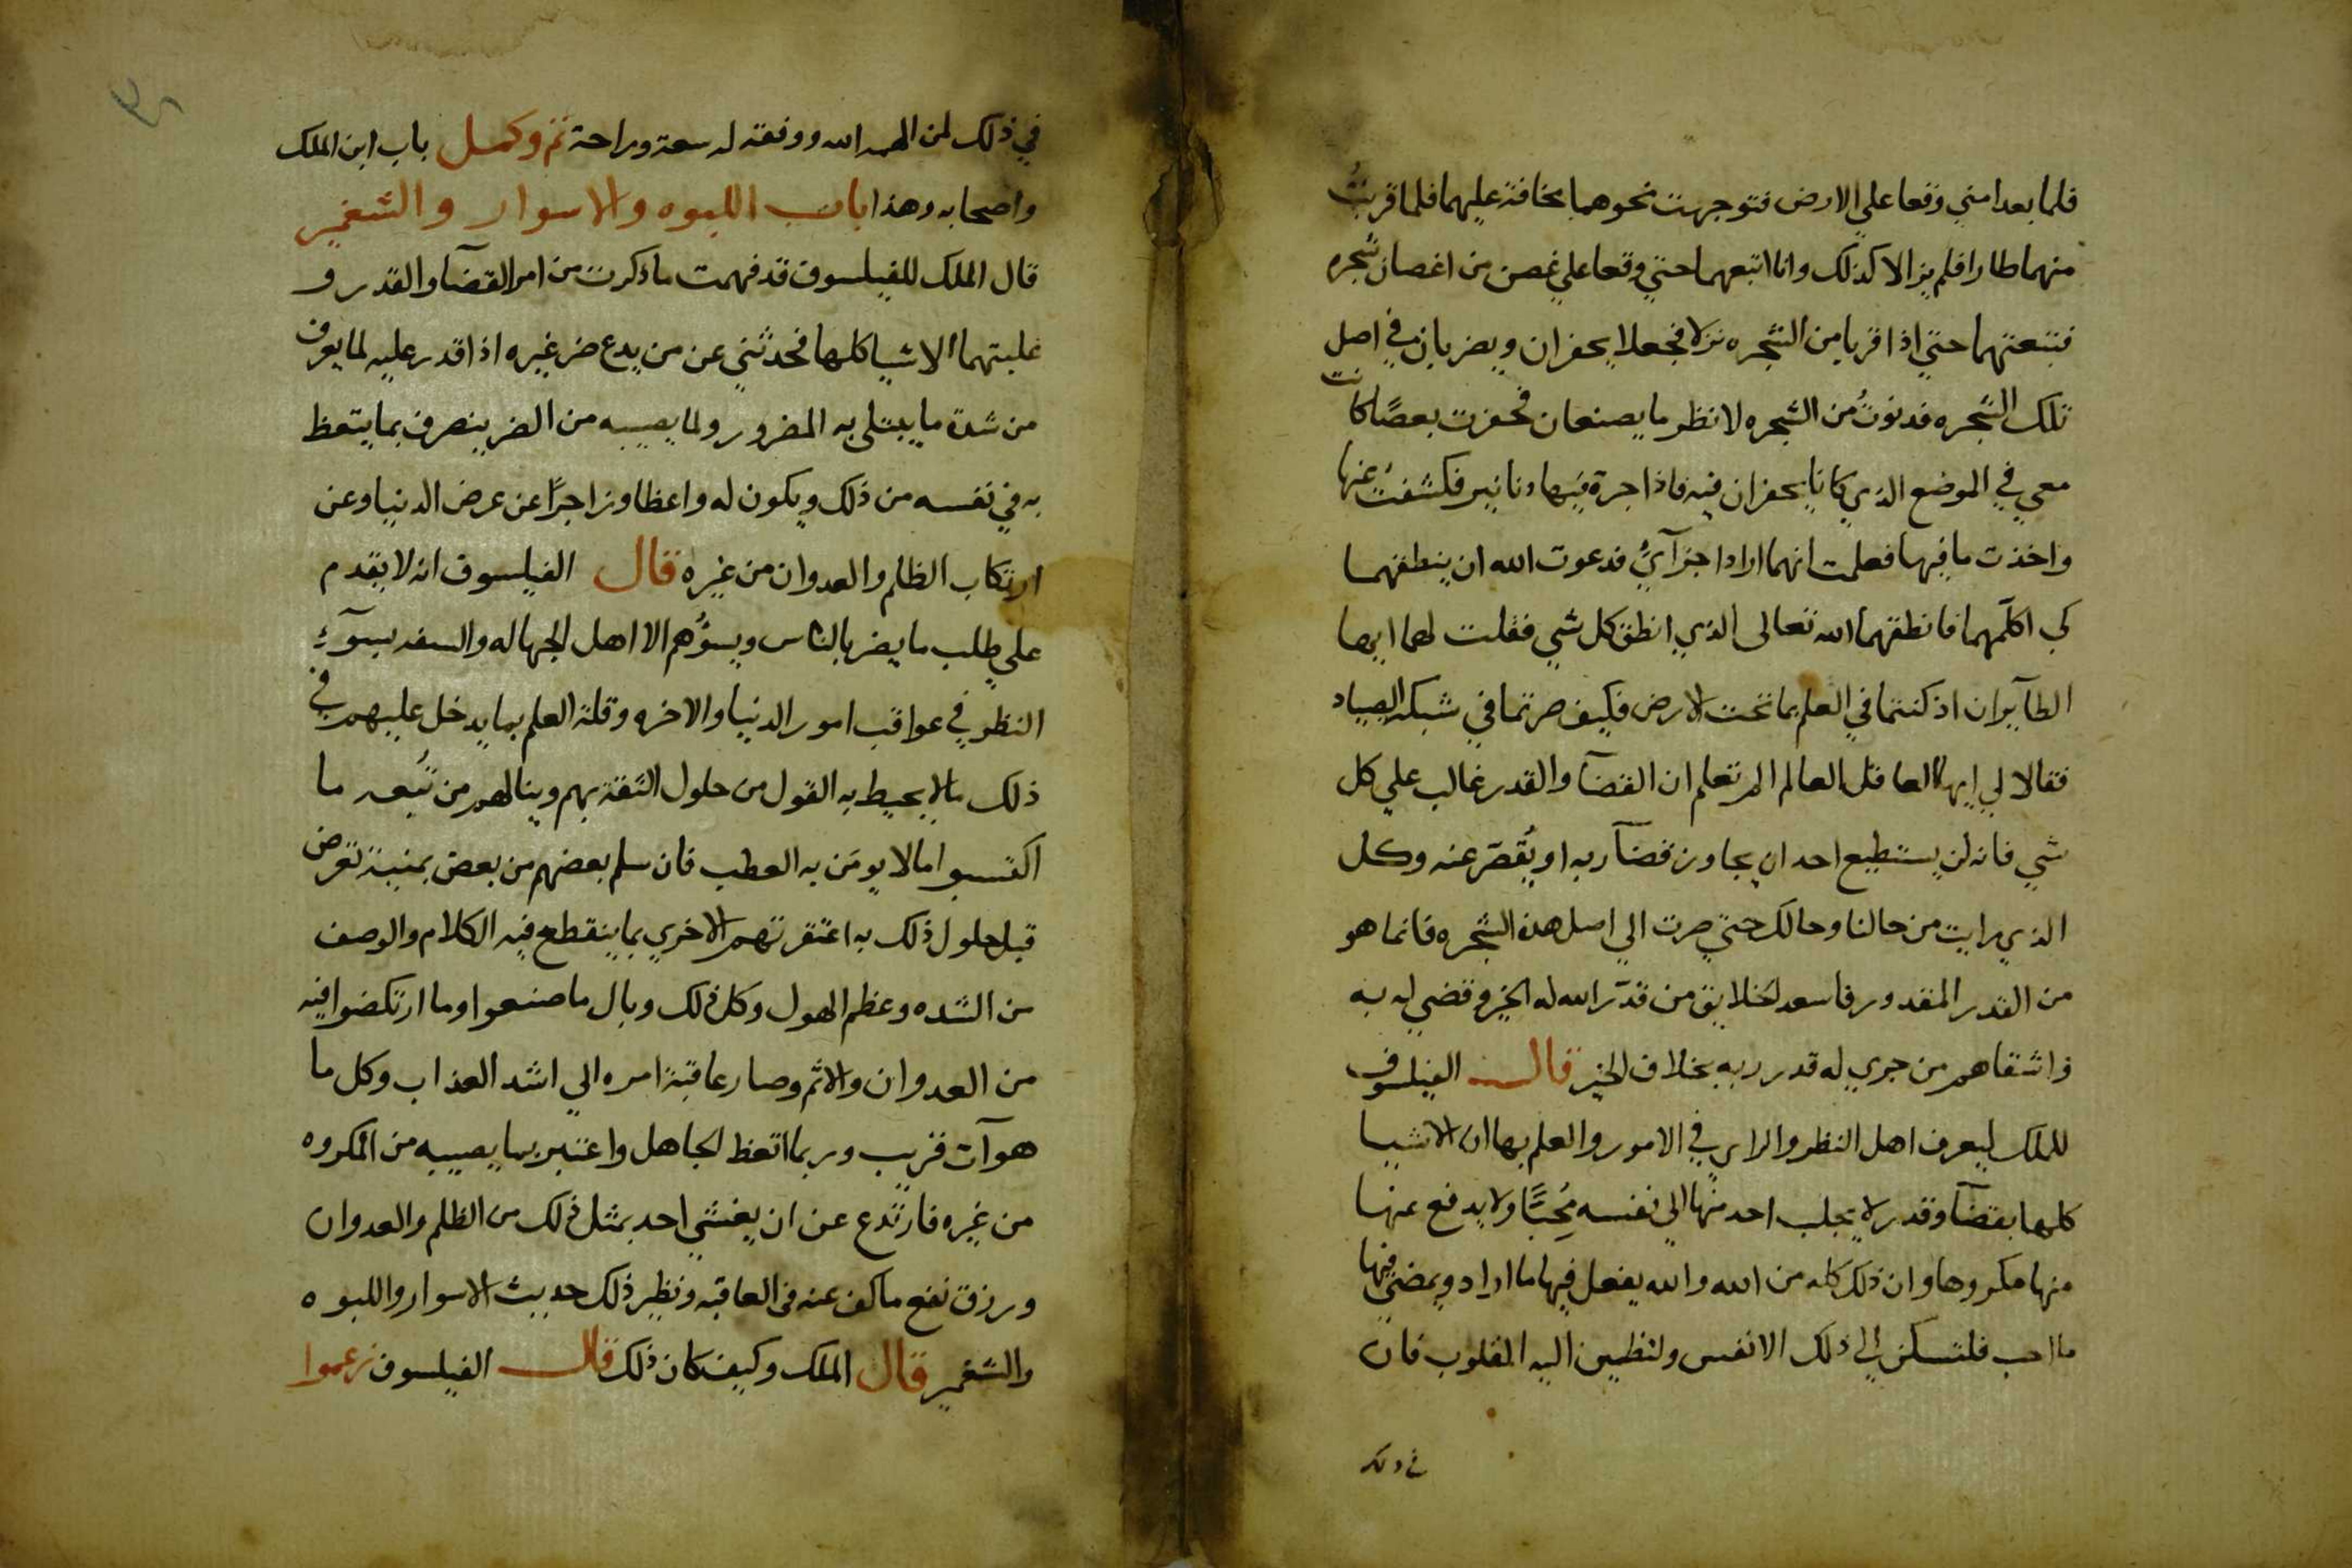 فلما بعدا مني وقعا علي الارض فتوجهت نحوهما مخافة عليهما فلما قربتُ
منهما طارا فلم يزالا كذلك وانا اتبعهما حتي وقعا علي غصن من اغصان شجره
فتبعتهما حتي اذا قربا من الشجره نزلا فجعلا يحفران ويضربان في اصل
تلك الشجره فدنوتُ من الشجره لانظر ما يصنعان فحفرت بعصًا كانت
معي في الموضع الذي كانا يحفران فيه فاذا جرة فيها دنانير فكشفت عنها
واخذت ما فيها فعلمت انهما ارادا جزآيُ فدعوت الله ان ينطقهما
كي اكلمهما فانطقهما الله تعالى الذي انطق كل شي فقلت لهما ايها
الطآيران اذ كنتما في العلم بما تحت الارض فكيف صرتما في شبكة الصياد
فقالا لي ايها العاقل العالم الم تعلم ان القضآ والقدر غالب علي كل
شي فانه لن يستطيع احد ان يجاوز قضآ ربه او يُقصّر عنه وكل
الذي رايت من حالنا وحالك حتي صرت الي اصل هذه الشجره فانما هو
من القدر المقدور فاسعد الخلايق من قدّر الله له الخير وقضي له به
واشقاهم من جري له قدر ربه بخلاف الخير قال الفيلسوف
للملك ليعرف اهل النظر والراي في الامور والعلم بها ان الاشيا
كلها بقضآ وقدر لا يجلب احد منها الي نفسه مُحِبًّا ولا يدفع عنها
منها مكروها وان ذلك كله من الله والله يفعل فيها ما اراد ويمضي فيها
ما احب فلتسكن الي ذلك الانفس ولتطمين اليه القلوب فان
في ذلك
في ذلك لمن الهمه الله ووفقه له سعة وراحة تم وكمل باب ابن الملك
واصحابه وهذا باب اللبوه والاسوار والشغبر
قال الملك للفيلسوف قد فهمت ما ذكرت من امر القضآ والقدر و
غلبتهما الاشيا كلها فحدثني عن من يدع ضر غيره اذا قدر عليه لما يعرف
من شدة ما يبتلى به المضرور ولما يصيبه من الضر ينصرف بما يتعظ
به في نفسه من ذلك ويكون له واعظا وزاجرًا عن عرض الدنيا وعن
ارتكاب الظلم والعدوان من غيره قال الفيلسوف انه لا يقدم
علي طلب ما يضر بالناس ويسؤهم الا اهل الجهاله والسفه بسوٓءِ
النظر في عواقب امور الدنيا والاخره وقلة العلم بما يدخل عليهم في
ذلك مالا يحيط به القول من حلول النقة بهم وينالهم من تُبعه ما
اكتسبوا مالا يومَن به العطب فان سلم بعضهم من بعض بمنية تعرض
قبل حلول ذلك به اعتقرتهم الاخري بما ينقطع فيه الكلام والوصف
من الشده وعظم الهول وكل ذلك وبال ما صنعوا وما ارتكضوا فيه
من العدوان والاثم وصار عاقبة امره الي اشد العذاب وكل ما
هو آت قريب وربما اتعظ الجاهل واعتبر بما يصيبه من المكروه
من غيره فارتدع عن ان يغشي احد بمثل ذلك من الظلم والعدوان
ورزق نفع ما كف عنه في العاقبه ونظير ذلك حديث الاسوار واللبوه
والشغبر قال الملك وكيف كان ذلك قال الفيلسوف زعموا